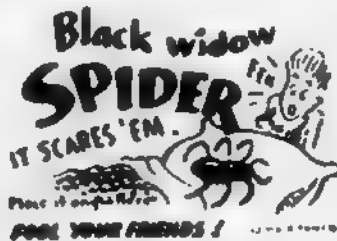 Black widow
SPIDER
IT SCARES 'EM.
Place it on
FOOL YOUR FRIENDS!